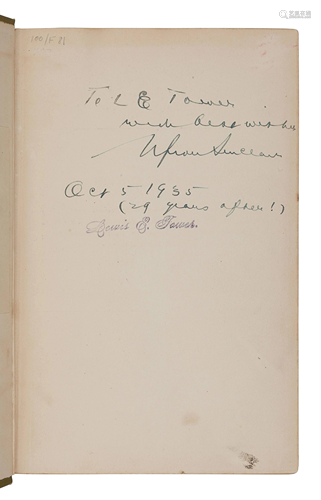 To L E Tower
with best wishes
Upton Sinclair
Oct 5 1935
(29 years after!)
Lewis E. Tower.